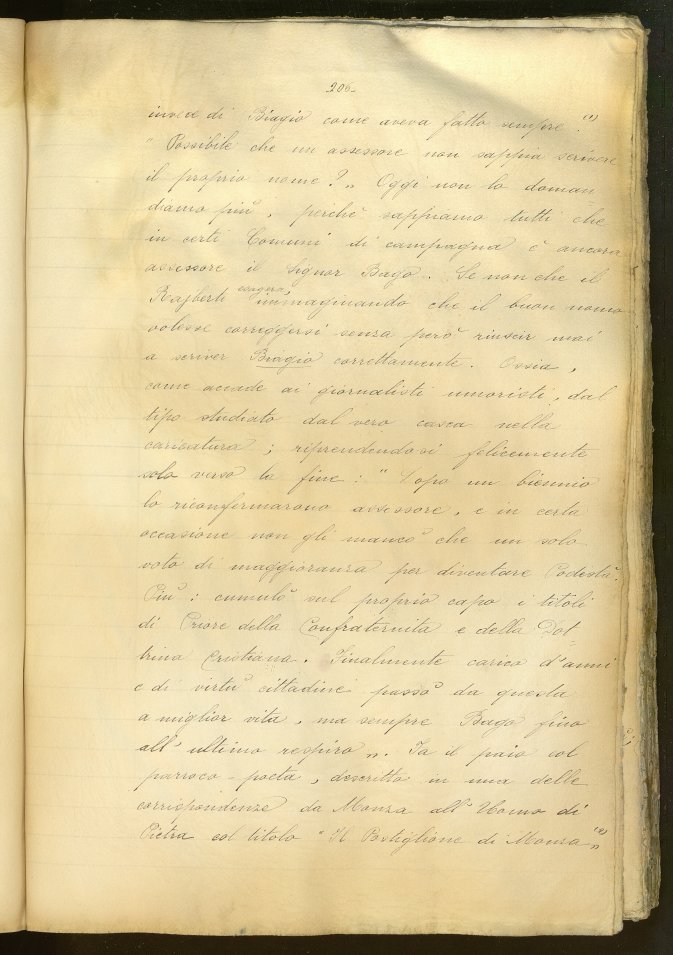 206.
invece di Biagio come aveva fatto sempre. (1)
" Possibile che un assessore non sappia scrivere
il proprio nome? „ Oggi non lo doman
diamo più, perchè sappiamo tutti che
in certi Comuni di campagna è ancora
assessore il signor Bago. Se non che il
Rajberti esagera, immaginando che il buon uomo
volesse correggersi senza però riuscir mai
a scriver Biagio correttamente. Ossia,
come accade ai giornalisti umoristi, dal
tipo studiato dal vero casca nella
caricatura; riprendendosi felicemente
solo verso la fine: " Dopo un biennio
lo riconfermarono assessore, e in certa
occasione non gli mancò che un solo
voto di maggioranza per diventare Podestà.
Più: cumulò sul proprio capo i titoli
di Priore della Confraternita e della Dot
trina Cristiana. Finalmente carico d'anni
e di virtù cittadine passò da questa
a miglior vita, ma sempre Bago fino
all'ultimo respiro „. Fa il paio col
parroco-poeta, descritto in una delle
corrispondenze da Monza all'Uomo di
Pietra col titolo " Il Postiglione di Monza „ (2)